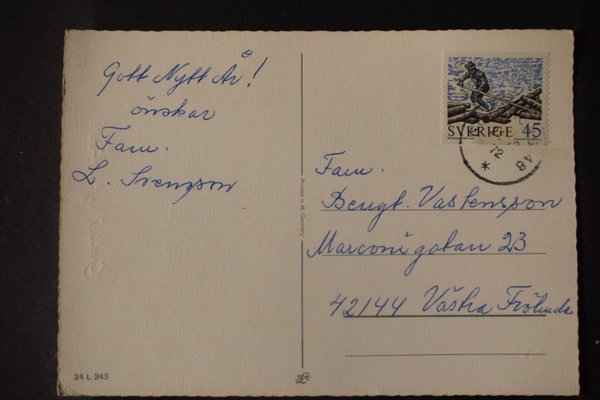 Gott Nytt År!
önskar
Fam.
L. Svensson
24 L 343
Printed in W.-Germany
SVERIGE 45
72
48
Fam.
Bengt. Vastensson
Marconigatan 23
42144 Västra Frölunda